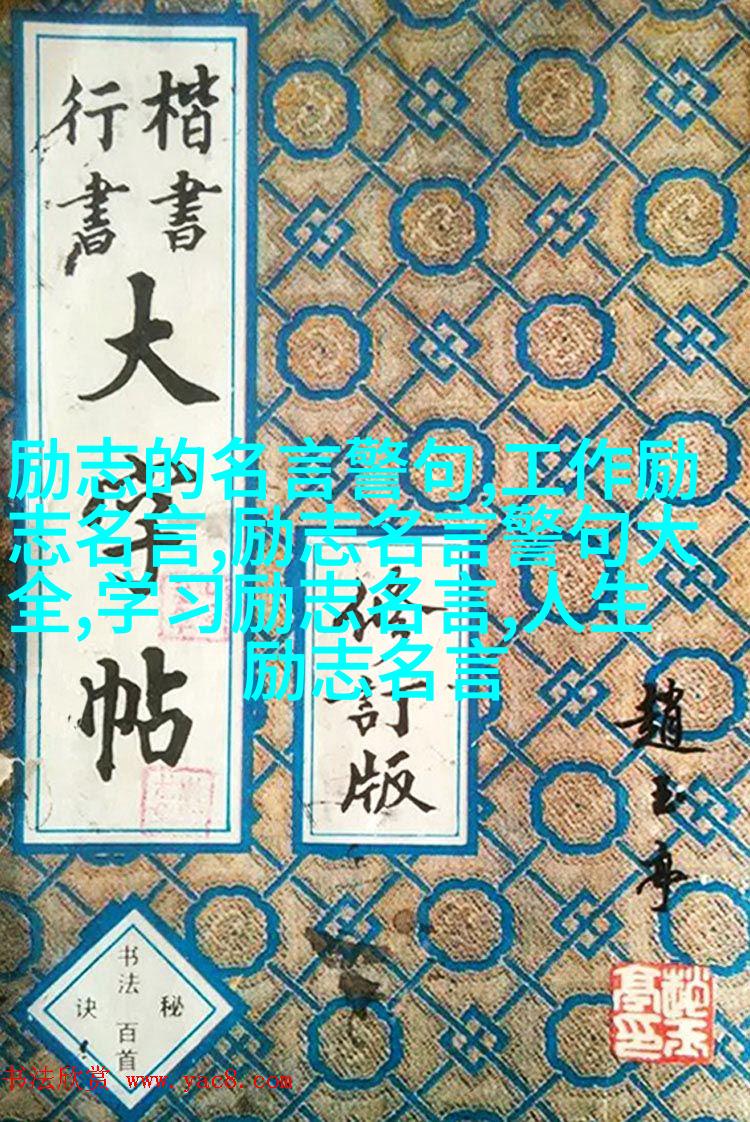 楷書
行書
大
帖
修訂版
趙玉亭
书法百首
秘诀
励志的名言警句,工作励
志名言,励志名言警句大
全,学习励志名言,人生
励志名言
书法欣赏 www.yac8.com